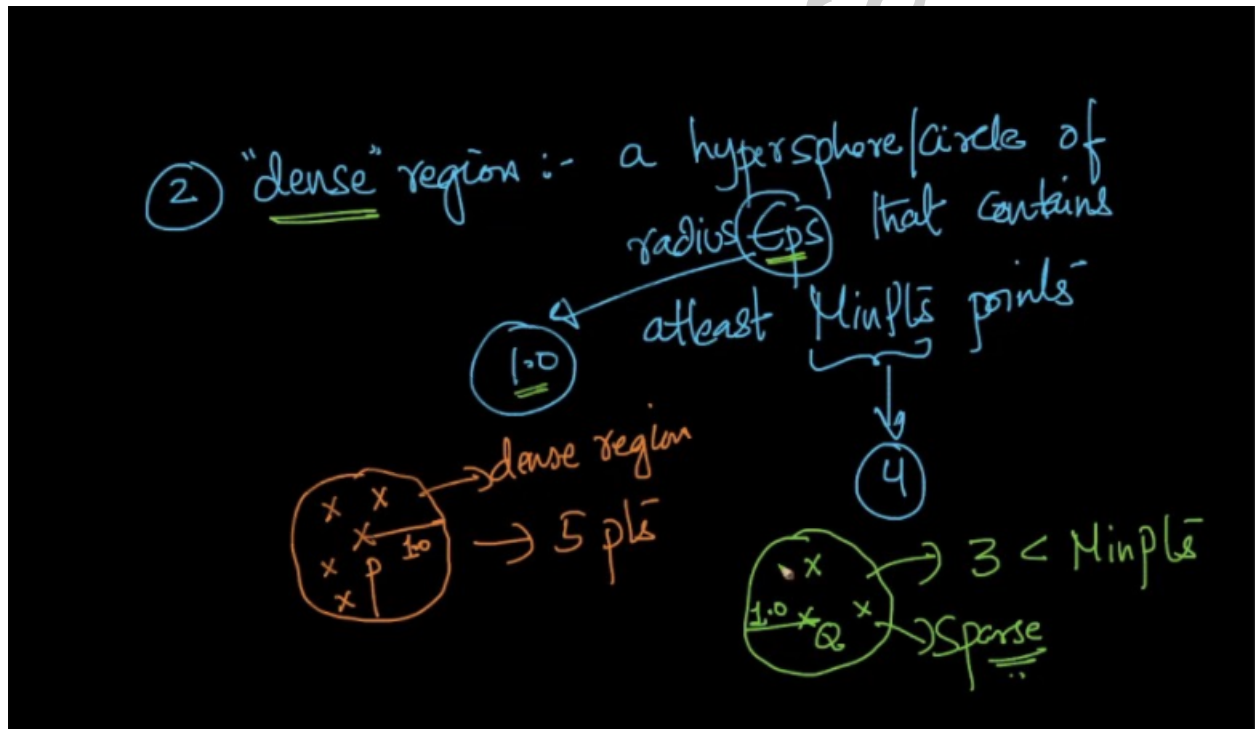 ② "dense" region :- a hypersphere/circle of
radius Eps that contains
atleast MinPts points
1.0
4
dense region
5 pts
1.0
P
3 < MinPts
1.0
Q
Sparse